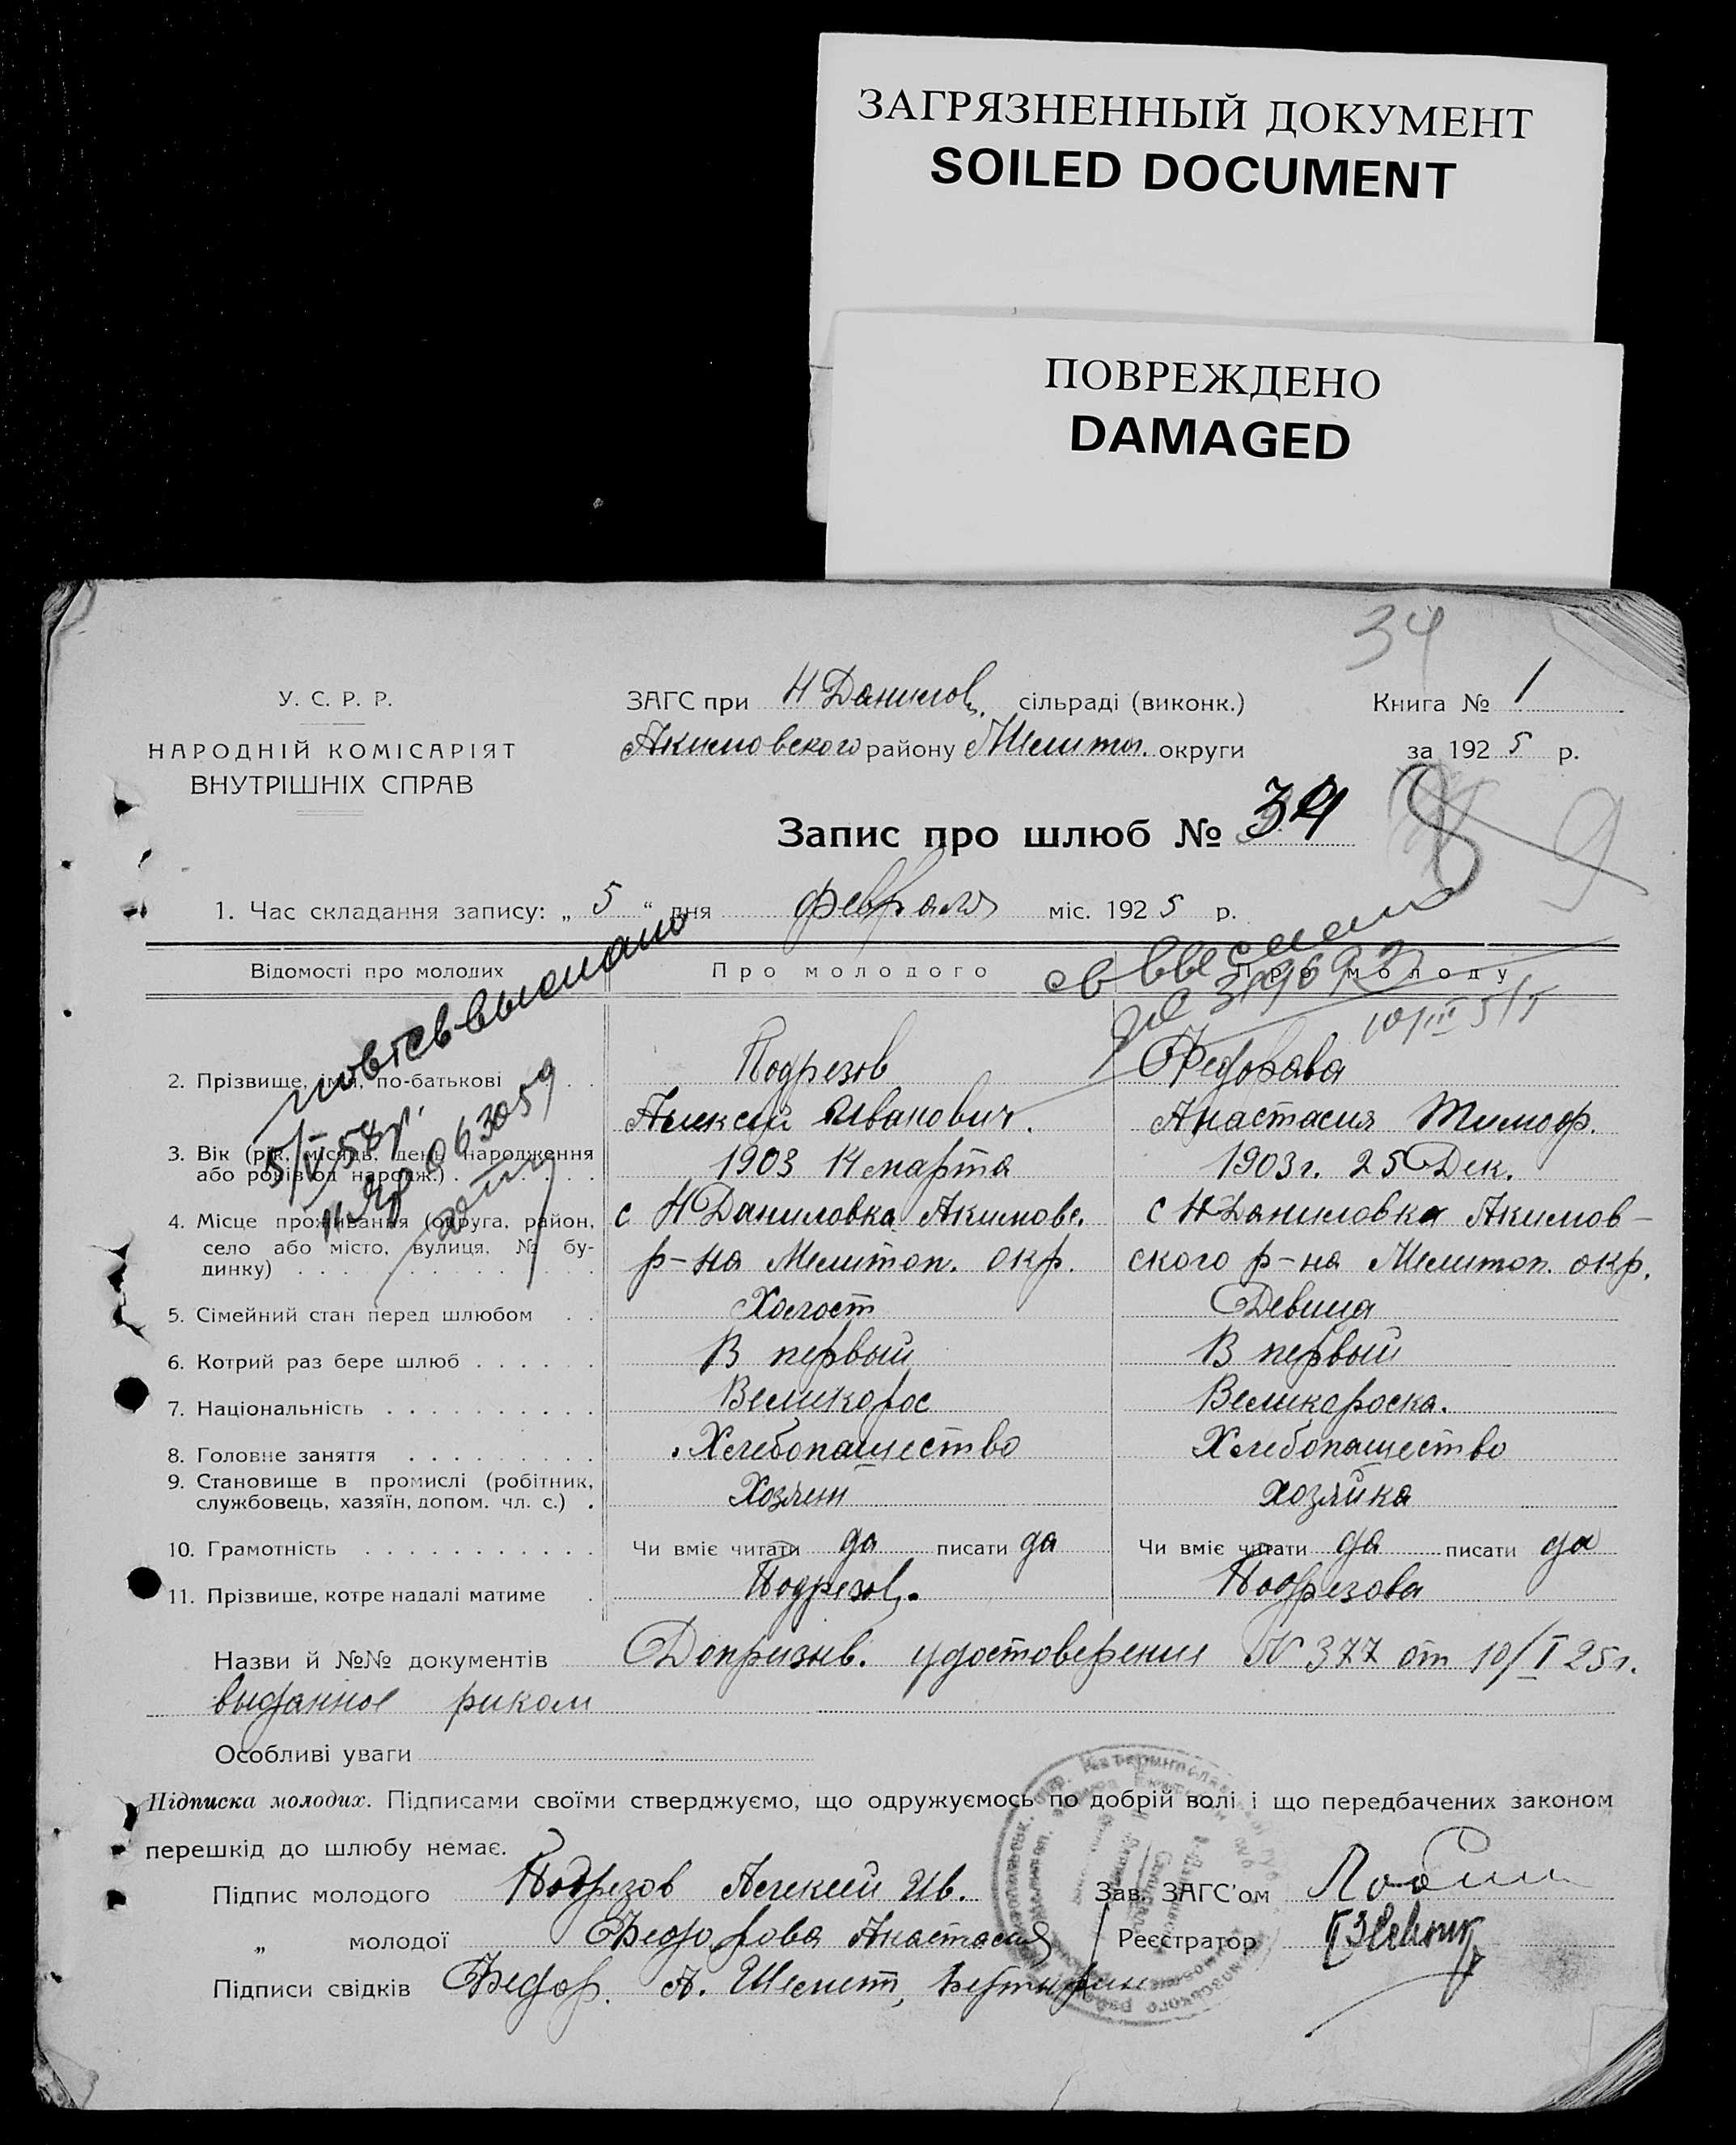 ЗАГРЯЗНЕННЫЙ ДОКУМЕНТ
SOILED DOCUMENT
ПОВРЕЖДЕНО
DAMAGED
34
У. С. Р. Р.
НАРОДНІЙ КОМІСАРІЯТ
ВНУТРІШНІХ СПРАВ
ЗАГС при Н Данилов. сільраді (виконк.)
Акимовского району Мелитоп. округи
Книга № 1
за 1925 р.
Запис про шлюб № 34
8 9
1. Час складання запису: „ 5 “ дня февраля міс. 1925 р.
Відомості про молодих Про молодого Про молоду
св выслано
10/III 51
повт св выслано
5/V 58 г.
063059
2. Прізвище, імя, по-батькові . . Подрезов Федорова
Алексей Иванович. Анастасия Тимоф.
3. Вік (рік, місяць, день народження 1903 14 марта 1903 г. 25 Дек.
або років од народж.) . . . . . .
4. Місце проживання (округа, район, с Н Даниловка Акимовс. с Н Даниловка Акимов-
село або місто, вулиця, № бу- р-на Мелитоп. окр. ского р-на Мелитоп. окр.
динку) . . . . . . . . . . . .
5. Сімейний стан перед шлюбом . . Холост Девица
6. Котрий раз бере шлюб . . . . . . В первый В первый
7. Національність . . . . . . . . . . Великорос Великороска.
8. Головне заняття . . . . . . . . . Хлебопашество Хлебопашество
9. Становище в промислі (робітник,
службовець, хазяїн, допом. чл. с.) . Хозяин хозяйка
10. Грамотність . . . . . . . . . . . Чи вміє читати да писати да Чи вміє читати да писати да
11. Прізвище, котре надалі матиме . Подрезов. Подрезова
Назви й №№ документів Допризыв. удостоверения № 377 от 10/I 25 г.
выданное риком
Особливі уваги
Підписка молодих. Підписами своїми стверджуємо, що одружуємось по добрій волі і що передбачених законом
перешкід до шлюбу немає.
Підпис молодого Подрезов Алексей Ив. Зав. ЗАГС'ом
„ молодої Федорова Анастасия Реєстратор
Підписи свідків Федор. А. Шелест,